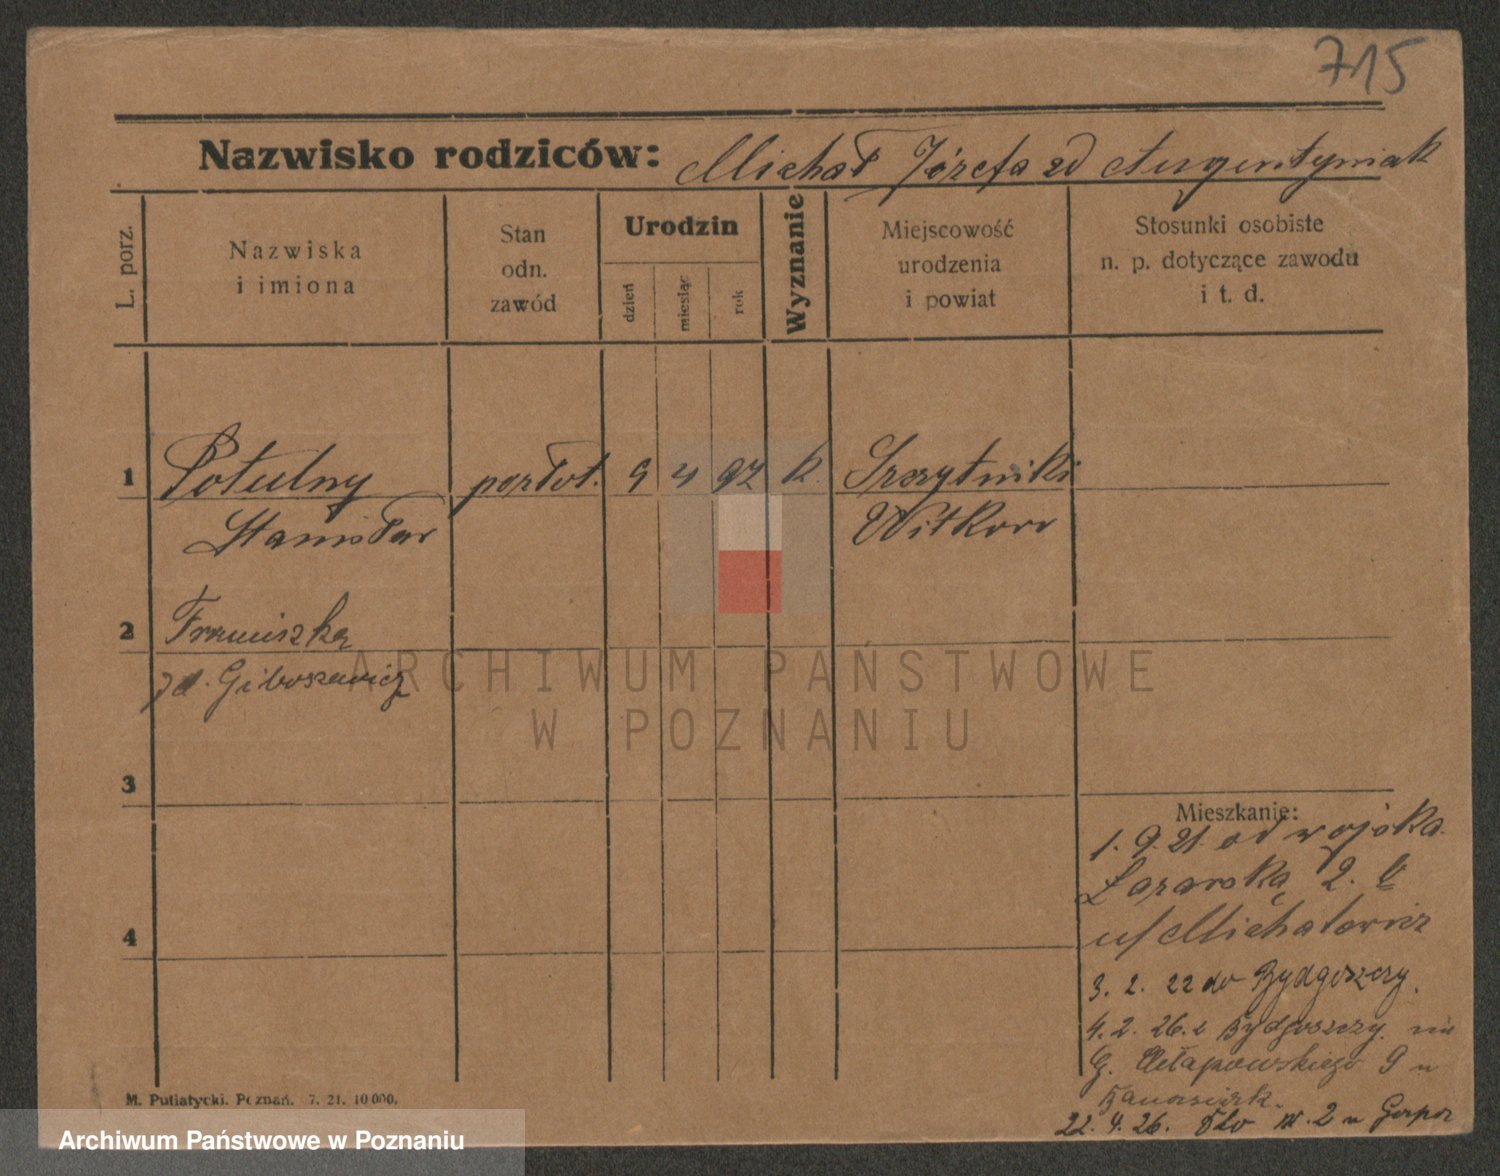 715
Nazwisko rodziców: Michał Józefa zd Augustyniak
L. porz.
Nazwiska
i imiona
Stan
odn.
zawód
Urodzin
dzień
miesiąc
rok
Wyznanie
Miejscowość
urodzenia
i powiat
Stosunki osobiste
n. p. dotyczące zawodu
i t. d.
1 Potulny 9 4 97 k. Szczytniki
Stanisław Witkowo
2 Franciszka
zd.
3
Mieszkanie:
1. 9. 21. od wojska
Łazarska 2.
4
u/
3. 2. 22 do Bydgoszczy.
4. 2. 26. z Bydgoszczy
G. Chłapowskiego 9 u
22. 4. 26. 2 u
M. Putiatycki. Poznań. 7. 21. 10 000.
ARCHIWUM PAŃSTWOWE
W POZNANIU
Archiwum Państwowe w Poznaniu